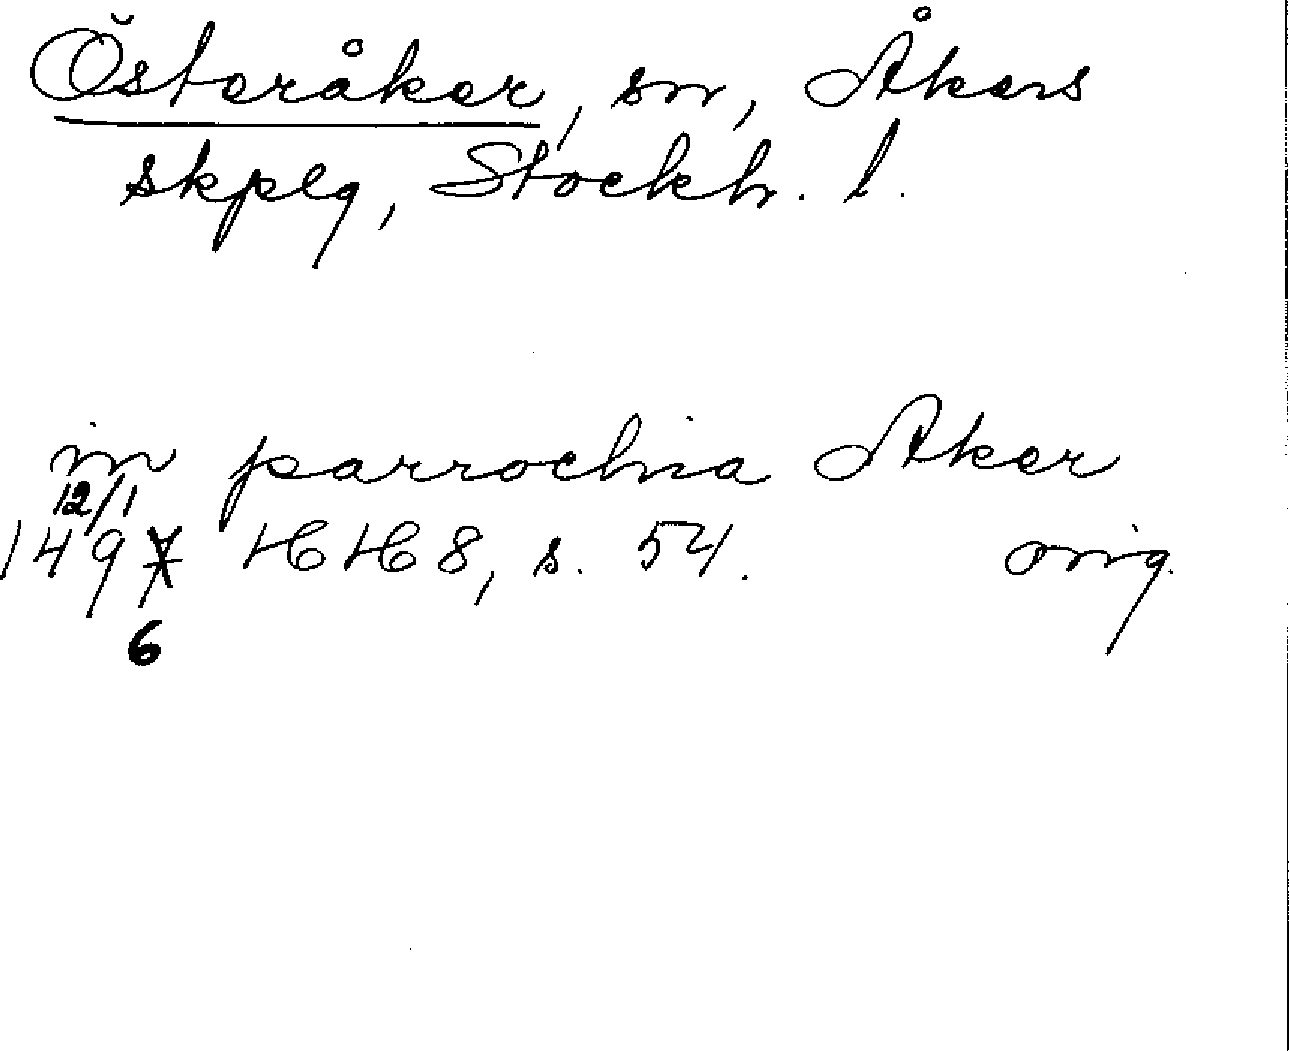 Österåker, sn, Åkers
skplg, Stockh. l.
in parrochia Aker
12/1
1497 HH 8, s. 54. orig.
6